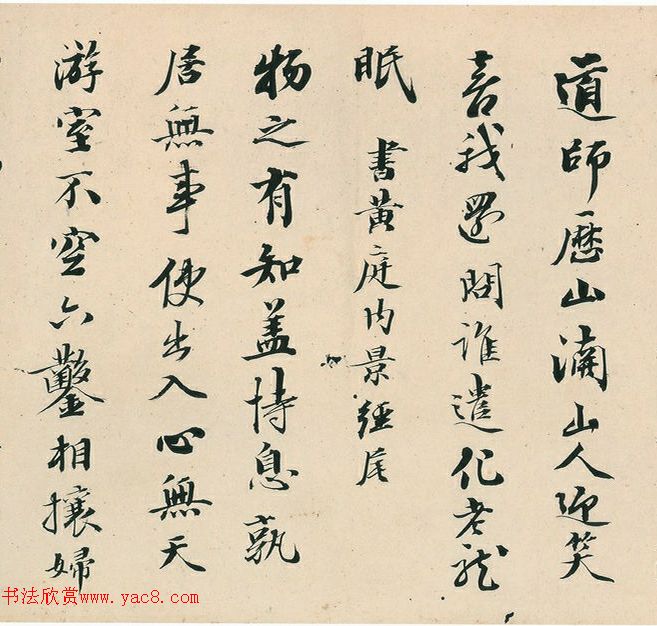 道師歷山澗山人迎笑
喜我還問誰遣化老龍
眠 書黃庭內景經尾
物之有知蓋恃息孰
居無事使出入心無天
游室不空六鑿相攘婦
书法欣赏www.yac8.com